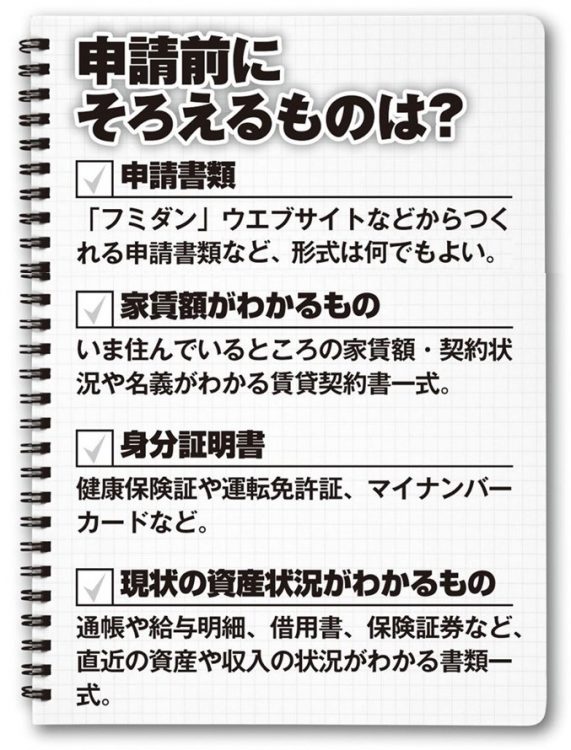 申請前に
そろえるものは?
申請書類
「フミダン」ウエブサイトなどからつく
れる申請書類など、形式は何でもよい。
家賃額がわかるもの
いま住んでいるところの家賃額・契約状
況や名義がわかる賃貸契約書一式。
身分証明書
健康保険証や運転免許証、マイナンバー
カードなど。
現状の資産状況がわかるもの
通帳や給与明細、借用書、保険証券など、
直近の資産や収入の状況がわかる書類一
式。